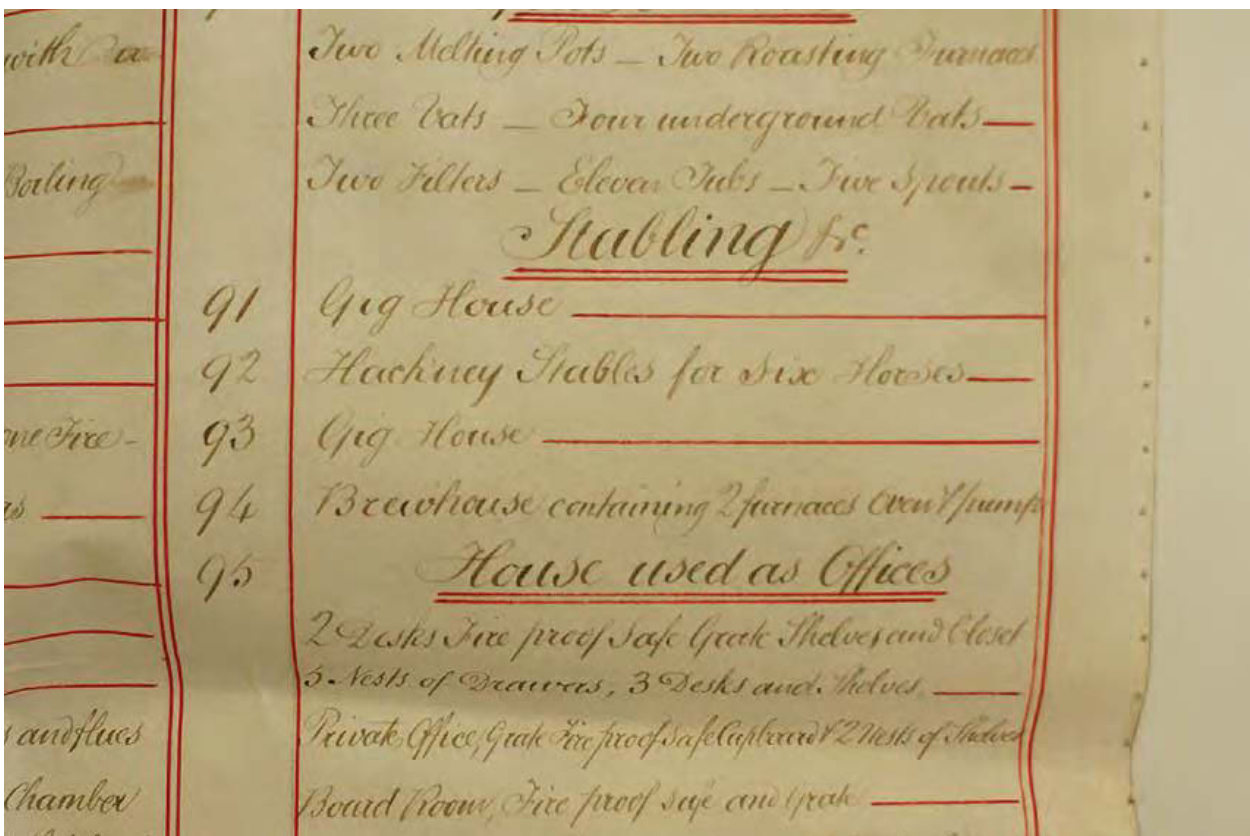 with a
Boiling
one Fire -
and flues
Chamber
Two Melting Pots — Two Roasting Furnaces
Three Vats — Four underground Vats —
Two Filters — Eleven Tubs — Five Spouts —
Stabling &c.
91 Gig House
92 Hackney Stables for Six Horses —
93 Gig House
94 Brewhouse containing 2 furnaces Oven & pump
95 House used as Offices
2 Desks Fire proof Safe Grate Shelves and Closet
5 Nests of Drawers, 3 Desks and Shelves
Private Office, Grate Fire proof Safe Cupboard & 2 Nests of Shelves
Board Room, Fire proof safe and Grate